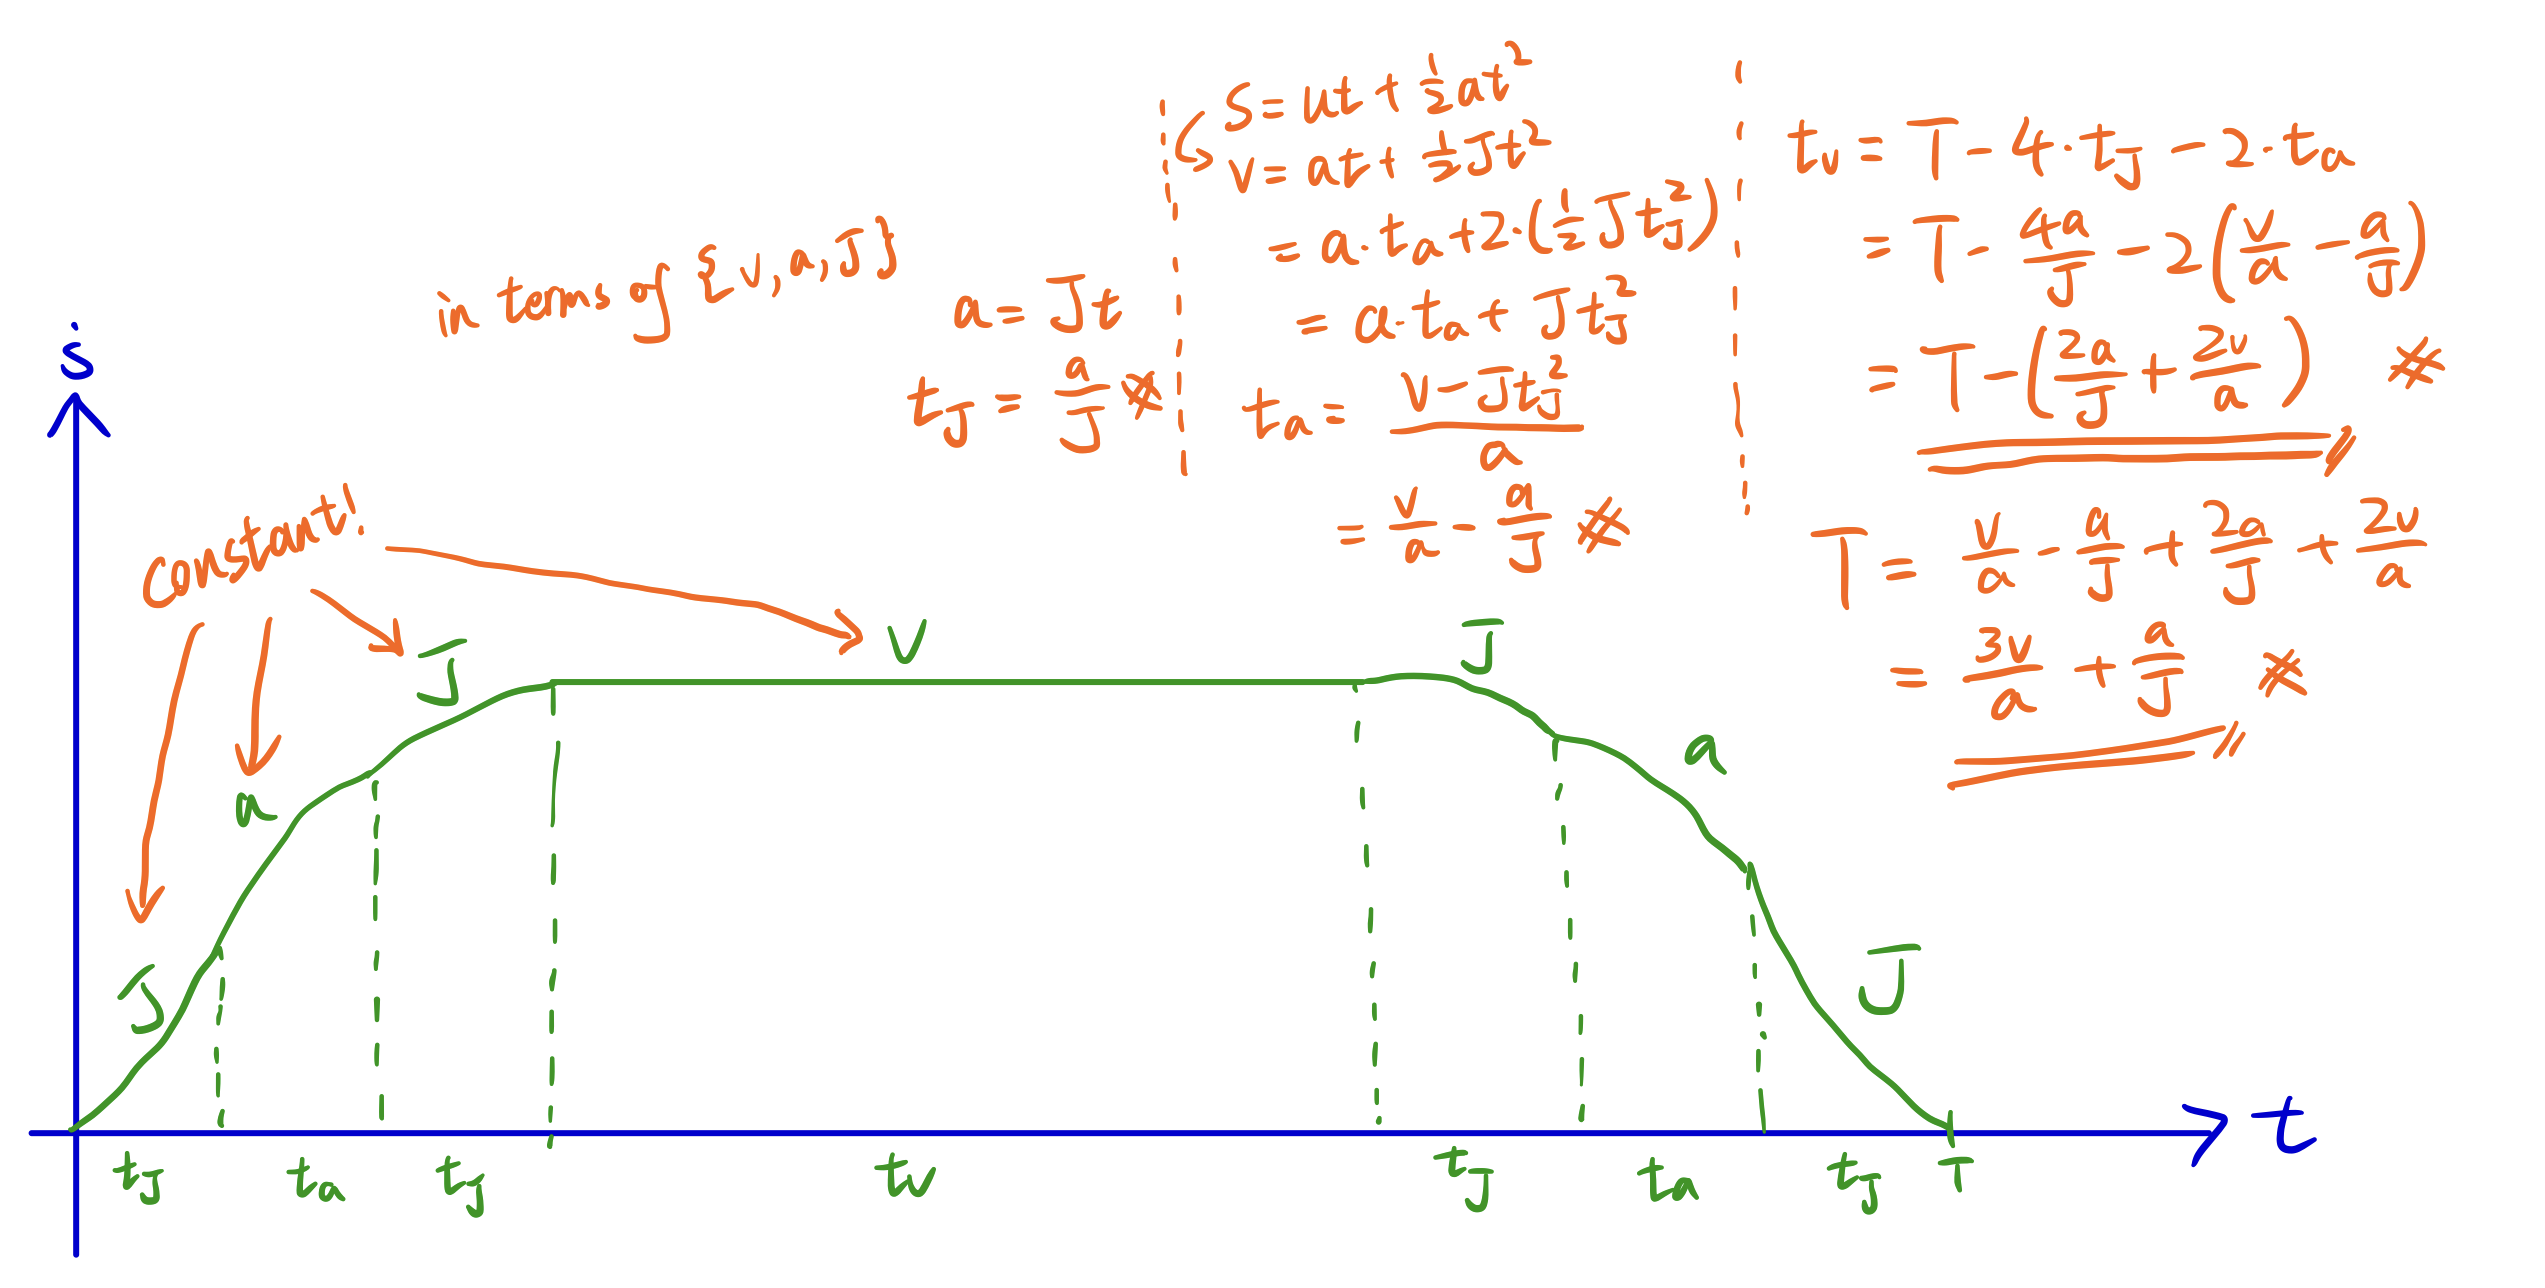 in terms of {v, a, J}
a = Jt
t_J = a/J ※
S = ut + ½at²
v = at + ½Jt²
= a·t_a + 2·(½Jt_J²)
= a·t_a + Jt_J²
t_a = (v - Jt_J²)/a
= v/a - a/J ※
t_v = T - 4·t_J - 2·t_a
= T - 4a/J - 2(v/a - a/J)
= T - (2a/J + 2v/a) ※
T = v/a - a/J + 2a/J + 2v/a
= 3v/a + a/J ※
ṡ
constant!
J
a
J
v
J
a
J
t
t_J
t_a
t_J
t_v
t_J
t_a
t_J
T